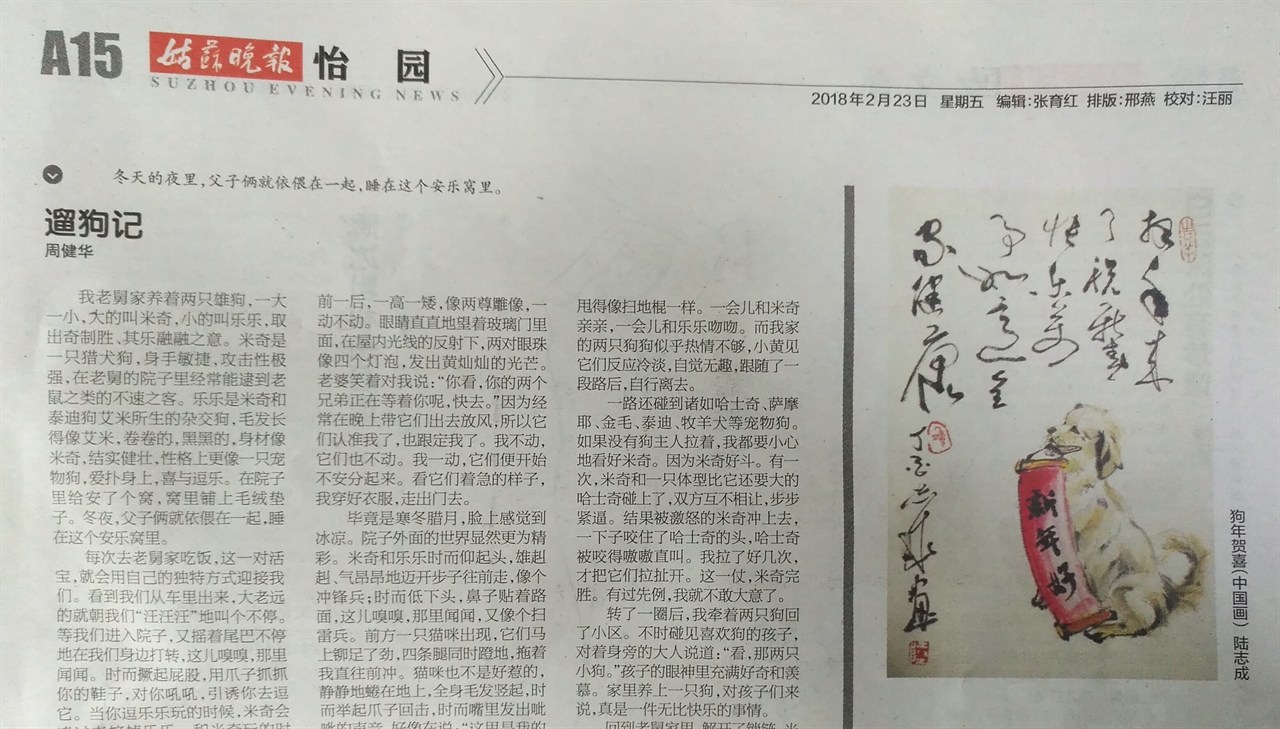 A15 姑苏晚報 怡园
SUZHOU EVENING NEWS
2018年2月23日 星期五 编辑:张育红 排版:邢燕 校对:汪丽
冬天的夜里,父子俩就依偎在一起,睡在这个安乐窝里。
遛狗记
周健华
我老舅家养着两只雄狗,一大
一小,大的叫米奇,小的叫乐乐,取
出奇制胜、其乐融融之意。米奇是
一只猎犬狗,身手敏捷,攻击性极
强,在老舅的院子里经常能逮到老
鼠之类的不速之客。乐乐是米奇和
泰迪狗艾米所生的杂交狗,毛发长
得像艾米,卷卷的,黑黑的,身材像
米奇,结实健壮,性格上更像一只宠
物狗,爱扑身上,喜与逗乐。在院子
里给安了个窝,窝里铺上毛绒垫
子。冬夜,父子俩就依偎在一起,睡
在这个安乐窝里。
每次去老舅家吃饭,这一对活
宝,就会用自己的独特方式迎接我
们。看到我们从车里出来,大老远
的就朝我们“汪汪汪”地叫个不停。
等我们进入院子,又摇着尾巴不停
地在我们身边打转,这儿嗅嗅,那里
闻闻。时而撅起屁股,用爪子抓抓
你的鞋子,对你吼吼,引诱你去逗
它。当你逗乐乐玩的时候,米奇会
前一后,一高一矮,像两尊雕像,一
动不动。眼睛直直地望着玻璃门里
面,在屋内光线的反射下,两对眼珠
像四个灯泡,发出黄灿灿的光芒。
老婆笑着对我说:“你看,你的两个
兄弟正在等着你呢,快去。”因为经
常在晚上带它们出去放风,所以它
们认准我了,也跟定我了。我不动,
它们也不动。我一动,它们便开始
不安分起来。看它们着急的样子,
我穿好衣服,走出门去。
毕竟是寒冬腊月,脸上感觉到
冰凉。院子外面的世界显然更为精
彩。米奇和乐乐时而仰起头,雄赳
赳、气昂昂地迈开步子往前走,像个
冲锋兵;时而低下头,鼻子贴着路
面,这儿嗅嗅,那里闻闻,又像个扫
雷兵。前方一只猫咪出现,它们马
上铆足了劲,四条腿同时蹬地,拖着
我直往前冲。猫咪也不是好惹的,
静静地蜷在地上,全身毛发竖起,时
而举起爪子回击,时而嘴里发出呲
呲的声音,好像在说:“这里是我的
甩得像扫地棍一样。一会儿和米奇
亲亲,一会儿和乐乐吻吻。而我家
的两只狗狗似乎热情不够,小黄见
它们反应冷淡,自觉无趣,跟随了一
段路后,自行离去。
一路还碰到诸如哈士奇、萨摩
耶、金毛、泰迪、牧羊犬等宠物狗。
如果没有狗主人拉着,我都要小心
地看好米奇。因为米奇好斗。有一
次,米奇和一只体型比它还要大的
哈士奇碰上了,双方互不相让,步步
紧逼。结果被激怒的米奇冲上去,
一下子咬住了哈士奇的头,哈士奇
被咬得嗷嗷直叫。我拉了好几次,
才把它们拉扯开。这一仗,米奇完
胜。有过先例,我就不敢大意了。
转了一圈后,我牵着两只狗回
了小区。不时碰见喜欢狗的孩子,
对着身旁的大人说道:“看,那两只
小狗。”孩子的眼神里充满好奇和羡
慕。家里养上一只狗,对孩子们来
说,真是一件无比快乐的事情。
新年好
狗年贺喜(中国画) 陆志成